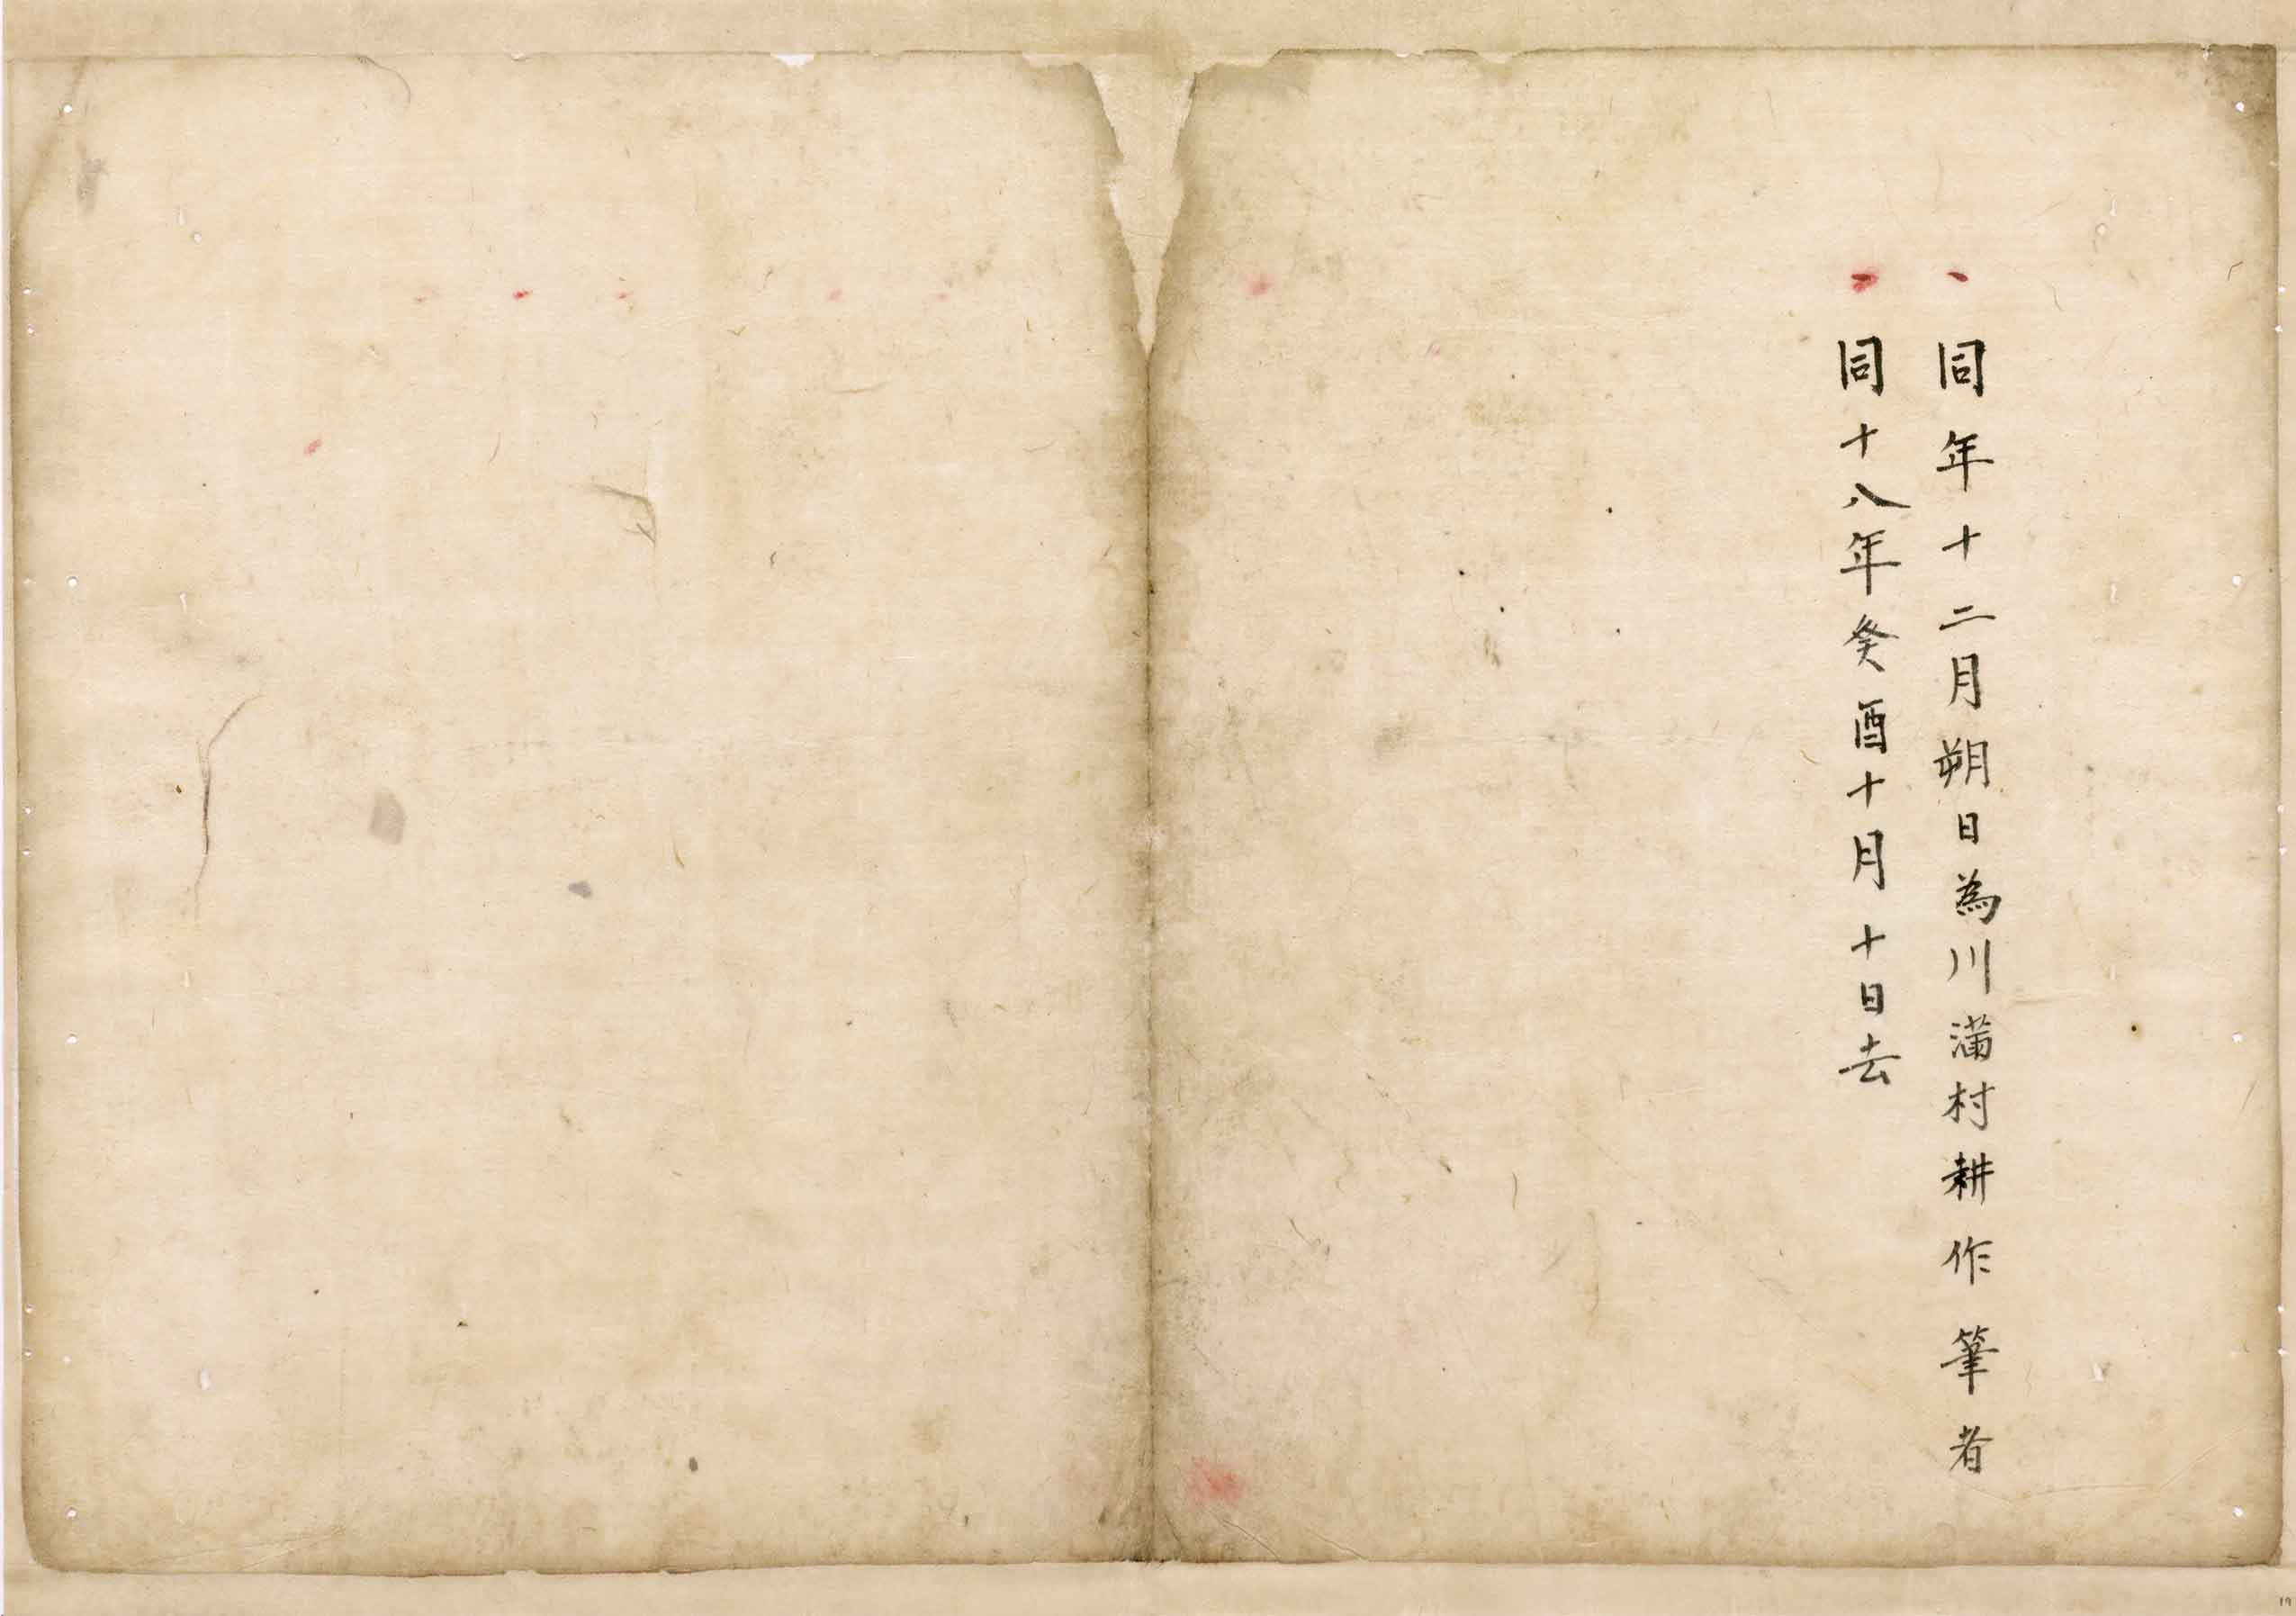 同年十二月朔日為川満村耕作筆者
同十八年癸酉十月十日去